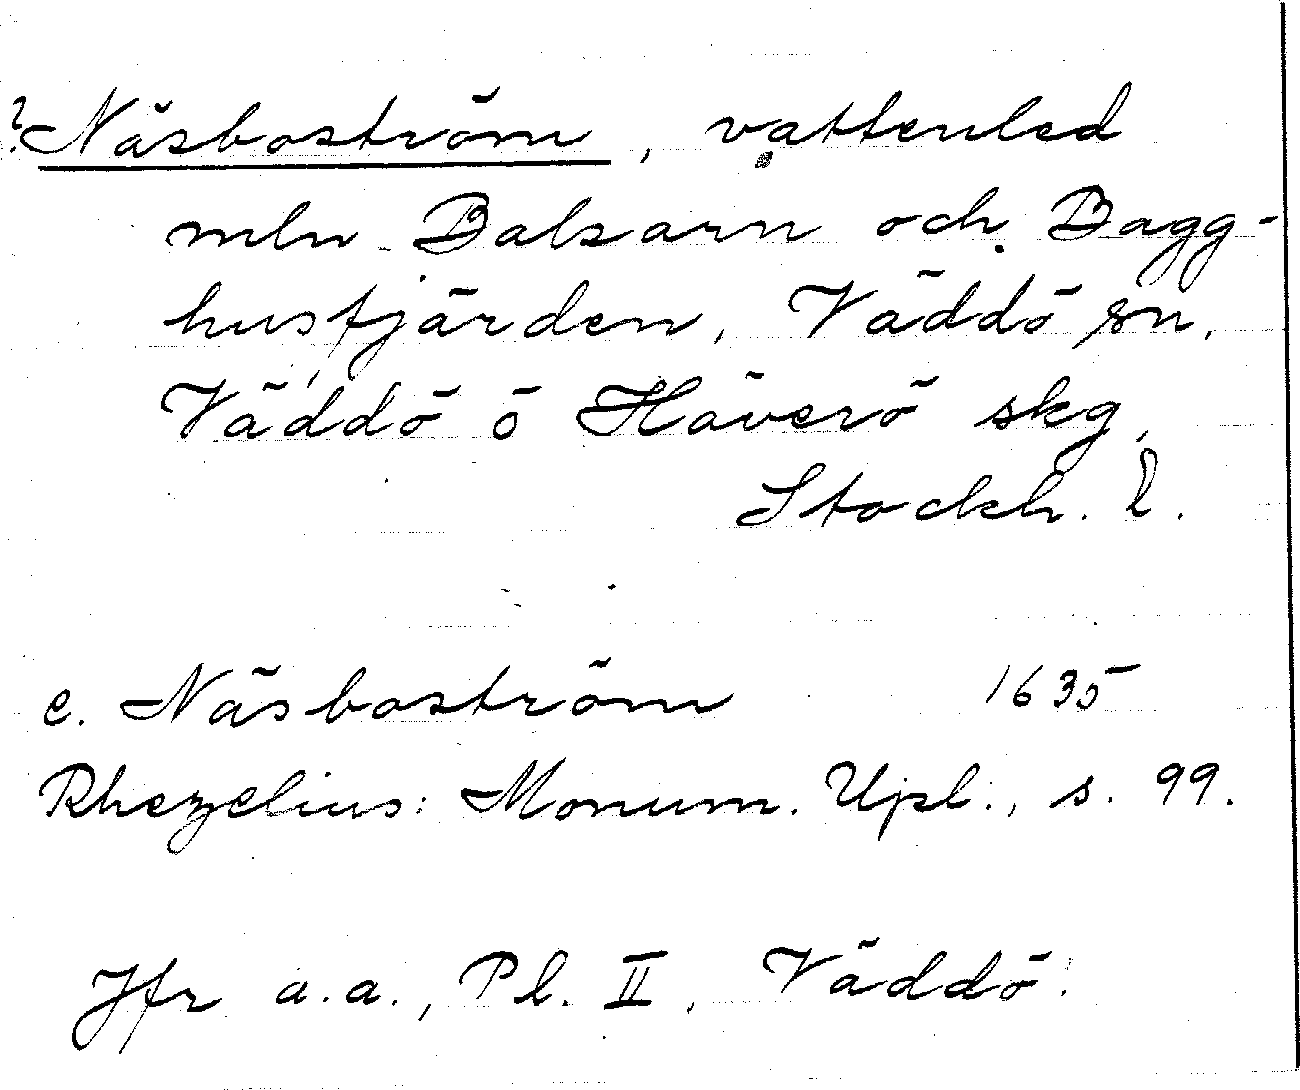 ? Näsboström, vattenled
mln Balsarn och Bagg-
husfjärden, Väddö sn,
Väddö o Häverö skg,
Stockh. l.
c. Näsboström 1635
Rhezelius: Monum. Upl., s. 99.
Jfr a.a., Pl. II, Väddö.